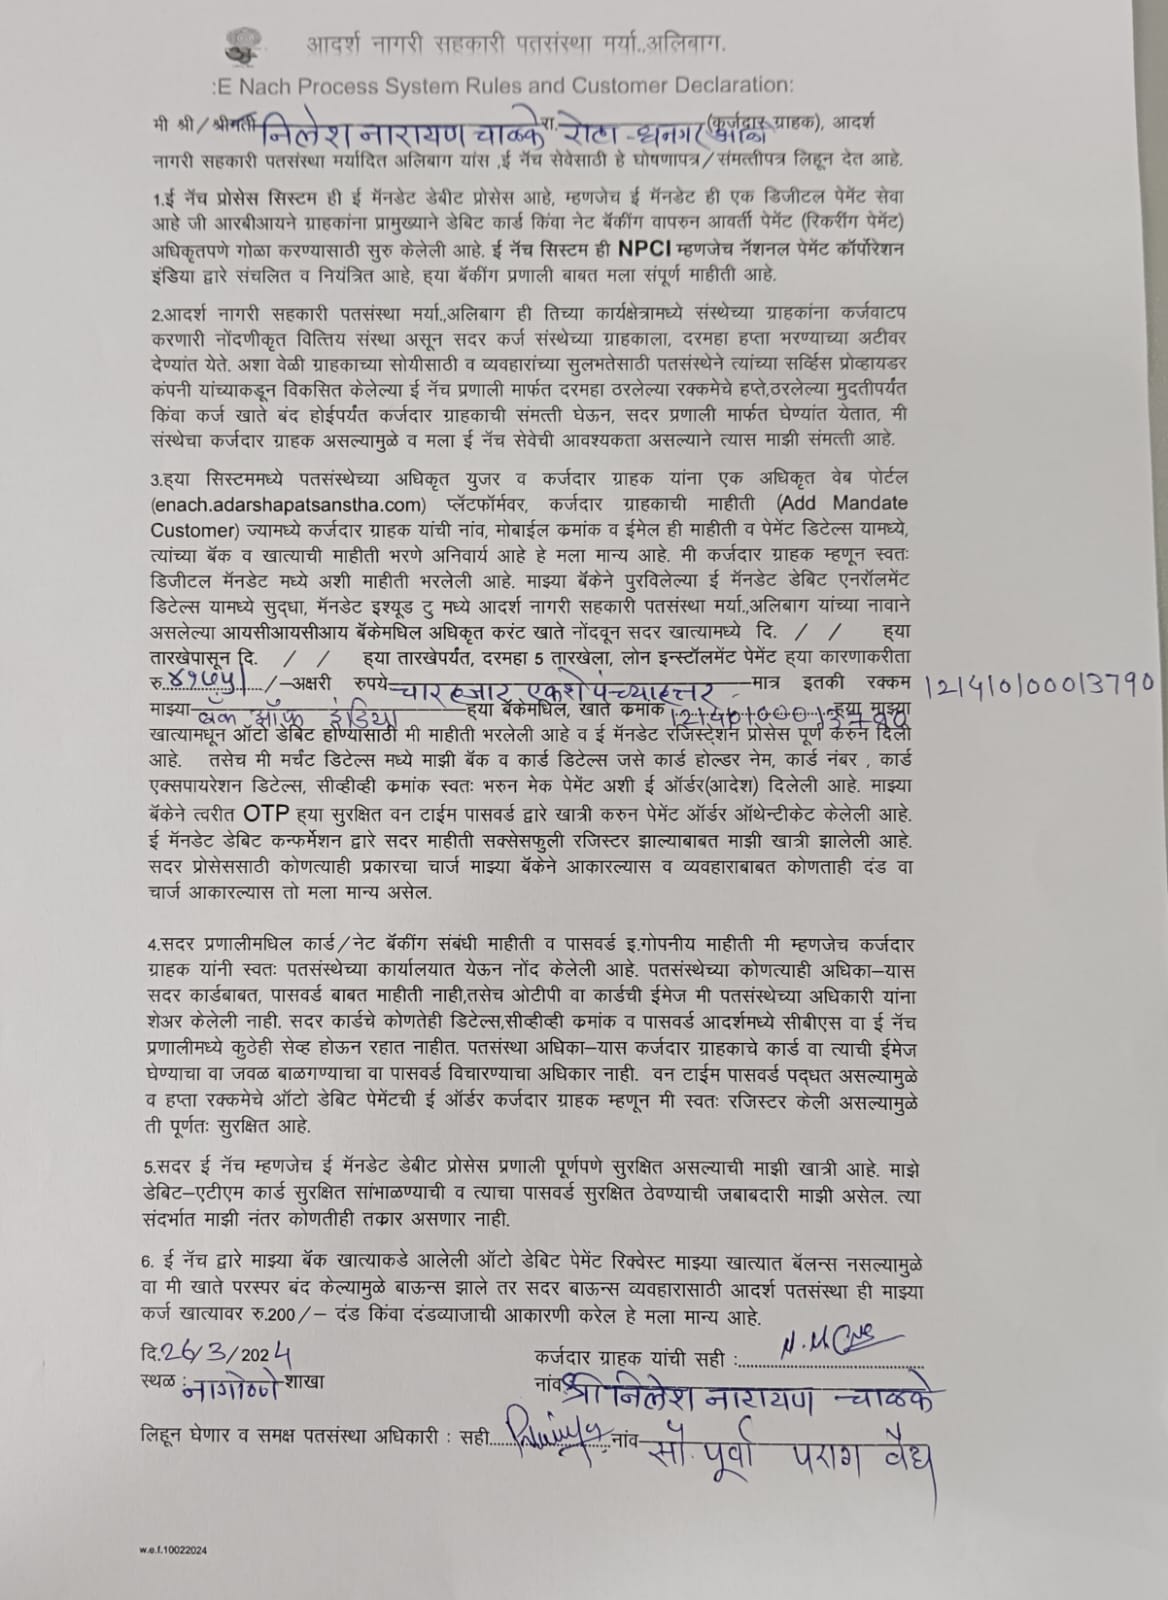 आदर्श नागरी सहकारी पतसंस्था मर्या.,अलिबाग.
:E Nach Process System Rules and Customer Declaration:
मी श्री/श्रीमती निलेश नारायण चाळके रा. रोठा - धनगर आळी (कर्जदार ग्राहक), आदर्श
नागरी सहकारी पतसंस्था मर्यादित अलिबाग यांस ,ई नॅच सेवेसाठी हे घोषणापत्र/संमत्तीपत्र लिहून देत आहे.
1.ई नॅच प्रोसेस सिस्टम ही ई मॅनडेट डेबीट प्रोसेस आहे, म्हणजेच ई मॅनडेट ही एक डिजीटल पेमेंट सेवा
आहे जी आरबीआयने ग्राहकांना प्रामुख्याने डेबिट कार्ड किंवा नेट बॅकींग वापरुन आवर्ती पेमेंट (रिकरींग पेमेंट)
अधिकृतपणे गोळा करण्यासाठी सुरु केलेली आहे. ई नॅच सिस्टम ही NPCI म्हणजेच नॅशनल पेमेंट कॉर्पोरेशन
इंडिया द्वारे संचलित व नियंत्रित आहे, ह्या बॅकींग प्रणाली बाबत मला संपूर्ण माहीती आहे.
2.आदर्श नागरी सहकारी पतसंस्था मर्या.,अलिबाग ही तिच्या कार्यक्षेत्रामध्ये संस्थेच्या ग्राहकांना कर्जवाटप
करणारी नोंदणीकृत वित्तिय संस्था असून सदर कर्ज संस्थेच्या ग्राहकाला, दरमहा हप्ता भरण्याच्या अटीवर
देण्यांत येते. अशा वेळी ग्राहकाच्या सोयीसाठी व व्यवहारांच्या सुलभतेसाठी पतसंस्थेने त्यांच्या सर्व्हिस प्रोव्हायडर
कंपनी यांच्याकडून विकसित केलेल्या ई नॅच प्रणाली मार्फत दरमहा ठरलेल्या रक्कमेचे हप्ते,ठरलेल्या मुदतीपर्यंत
किंवा कर्ज खाते बंद होईपर्यंत कर्जदार ग्राहकाची संमत्ती घेऊन, सदर प्रणाली मार्फत घेण्यांत येतात, मी
संस्थेचा कर्जदार ग्राहक असल्यामुळे व मला ई नॅच सेवेची आवश्यकता असल्याने त्यास माझी संमत्ती आहे.
3.ह्या सिस्टममध्ये पतसंस्थेच्या अधिकृत युजर व कर्जदार ग्राहक यांना एक अधिकृत वेब पोर्टल
(enach.adarshapatsanstha.com) प्लॅटफॉर्मवर, कर्जदार ग्राहकाची माहीती (Add Mandate
Customer) ज्यामध्ये कर्जदार ग्राहक यांची नांव, मोबाईल क्रमांक व ईमेल ही माहीती व पेमेंट डिटेल्स यामध्ये,
त्यांच्या बॅक व खात्याची माहीती भरणे अनिवार्य आहे हे मला मान्य आहे. मी कर्जदार ग्राहक म्हणून स्वतः
डिजीटल मॅनडेट मध्ये अशी माहीती भरलेली आहे. माझ्या बॅकेने पुरविलेल्या ई मॅनडेट डेबिट एनरॉलमेंट
डिटेल्स यामध्ये सुद्धा, मॅनडेट इश्यूड टु मध्ये आदर्श नागरी सहकारी पतसंस्था मर्या.,अलिबाग यांच्या नावाने
असलेल्या आयसीआयसीआय बॅकेमधिल अधिकृत करंट खाते नोंदवून सदर खात्यामध्ये दि. / / ह्या
तारखेपासून दि. / / ह्या तारखेपर्यंत, दरमहा 5 तारखेला, लोन इन्स्टॉलमेंट पेमेंट ह्या कारणाकरीता
रु.४१७५/- अक्षरी रुपये चार हजार एकशे पंच्याहत्तर मात्र इतकी रक्कम 121410100013790
माझ्या बँक ऑफ इंडिया ह्या बॅकेमधिल, खाते क्रमांक 121410100013790 ह्या माझ्या
खात्यामधून ऑटो डेबिट होण्यासाठी मी माहीती भरलेली आहे व ई मॅनडेट रजिस्टेशन प्रोसेस पूर्ण करुन दिली
आहे. तसेच मी मर्चंट डिटेल्स मध्ये माझी बॅक व कार्ड डिटेल्स जसे कार्ड होल्डर नेम, कार्ड नंबर , कार्ड
एक्सपायरेशन डिटेल्स, सीव्हीव्ही क्रमांक स्वतः भरुन मेक पेमेंट अशी ई ऑर्डर(आदेश) दिलेली आहे. माझ्या
बॅकेने त्वरीत OTP ह्या सुरक्षित वन टाईम पासवर्ड द्वारे खात्री करुन पेमेंट ऑर्डर ऑथेन्टीकेट केलेली आहे.
ई मॅनडेट डेबिट कन्फर्मेशन द्वारे सदर माहीती सक्सेसफुली रजिस्टर झाल्याबाबत माझी खात्री झालेली आहे.
सदर प्रोसेससाठी कोणत्याही प्रकारचा चार्ज माझ्या बॅकेने आकारल्यास व व्यवहाराबाबत कोणताही दंड वा
चार्ज आकारल्यास तो मला मान्य असेल.
4.सदर प्रणालीमधिल कार्ड/नेट बॅकींग संबंधी माहीती व पासवर्ड इ.गोपनीय माहीती मी म्हणजेच कर्जदार
ग्राहक यांनी स्वतः पतसंस्थेच्या कार्यालयात येऊन नोंद केलेली आहे. पतसंस्थेच्या कोणत्याही अधिका–यास
सदर कार्डबाबत, पासवर्ड बाबत माहीती नाही,तसेच ओटीपी वा कार्डची ईमेज मी पतसंस्थेच्या अधिकारी यांना
शेअर केलेली नाही. सदर कार्डचे कोणतेही डिटेल्स,सीव्हीव्ही क्रमांक व पासवर्ड आदर्शमध्ये सीबीएस वा ई नॅच
प्रणालीमध्ये कुठेही सेव्ह होऊन रहात नाहीत. पतसंस्था अधिका–यास कर्जदार ग्राहकाचे कार्ड वा त्याची ईमेज
घेण्याचा वा जवळ बाळगण्याचा वा पासवर्ड विचारण्याचा अधिकार नाही. वन टाईम पासवर्ड पद्धत असल्यामुळे
व हप्ता रक्कमेचे ऑटो डेबिट पेमेंटची ई ऑर्डर कर्जदार ग्राहक म्हणून मी स्वतः रजिस्टर केली असल्यामुळे
ती पूर्णतः सुरक्षित आहे.
5.सदर ई नॅच म्हणजेच ई मॅनडेट डेबीट प्रोसेस प्रणाली पूर्णपणे सुरक्षित असल्याची माझी खात्री आहे. माझे
डेबिट–एटीएम कार्ड सुरक्षित सांभाळण्याची व त्याचा पासवर्ड सुरक्षित ठेवण्याची जबाबदारी माझी असेल. त्या
संदर्भात माझी नंतर कोणतीही तक्रार असणार नाही.
6. ई नॅच द्वारे माझ्या बॅक खात्याकडे आलेली ऑटो डेबिट पेमेंट रिक्वेस्ट माझ्या खात्यात बॅलन्स नसल्यामुळे
वा मी खाते परस्पर बंद केल्यामुळे बाऊन्स झाले तर सदर बाऊन्स व्यवहारासाठी आदर्श पतसंस्था ही माझ्या
कर्ज खात्यावर रु.200/– दंड किंवा दंडव्याजाची आकारणी करेल हे मला मान्य आहे.
दि.26/3/2024 कर्जदार ग्राहक यांची सही :
स्थळ : नागोठणे शाखा नांव श्री निलेश नारायण चाळके
लिहून घेणार व समक्ष पतसंस्था अधिकारी : सही नांव सौ. पूर्वा पराग वैद्य
w.e.f.10022024